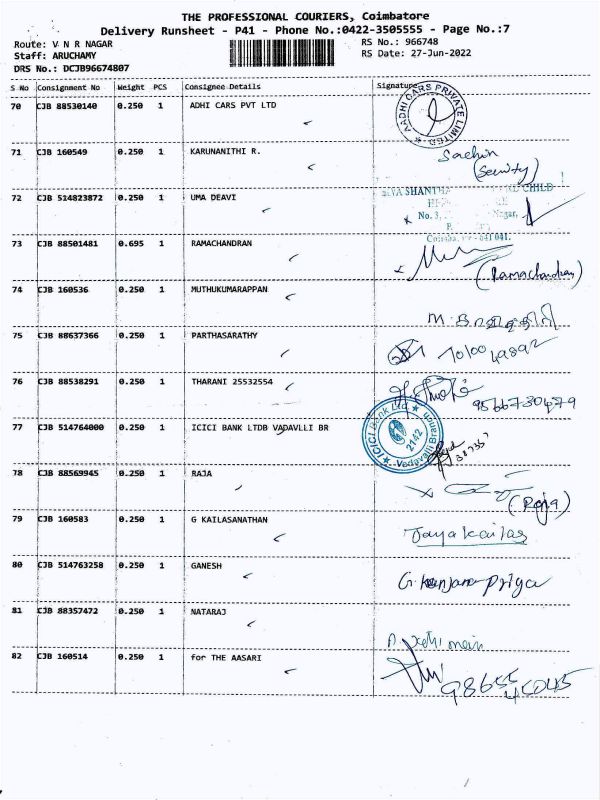 THE PROFESSIONAL COURIERS, Coimbatore
Delivery Runsheet - P41 - Phone No.:0422-3505555 - Page No.:7
Route: V N R NAGAR
RS No.: 966748
Staff: ARUCHAMY
RS Date: 27-Jun-2022
DRS No.: DCJB96674807
S No Consignment No Weight PCS Consignee Details Signature
70 CJB 88530140 0.250 1 ADHI CARS PVT LTD
AADHI CARS PRIVATE LIMITED
71 CJB 160549 0.250 1 KARUNANITHI R.
Sachin
72 CJB 514823872 0.250 1 UMA DEAVI
SHANTHA CHILD
No. 3, Nagar,
641 041.
73 CJB 88501481 0.695 1 RAMACHANDRAN
(Ramachandran)
74 CJB 160536 0.250 1 MUTHUKUMARAPPAN
75 CJB 88637366 0.250 1 PARTHASARATHY
76 CJB 88538291 0.250 1 THARANI 25532554
9566730479
77 CJB 514764000 0.250 1 ICICI BANK LTDB VADAVLLI BR
ICICI Bank Ltd
2142
Vadavalli Branch
78 CJB 88569945 0.250 1 RAJA
(Raja)
79 CJB 160583 0.250 1 G KAILASANATHAN
Jayakailas
80 CJB 514763258 0.250 1 GANESH
G. kanjana priya
81 CJB 88357472 0.250 1 NATARAJ
82 CJB 160514 0.250 1 for THE AASARI